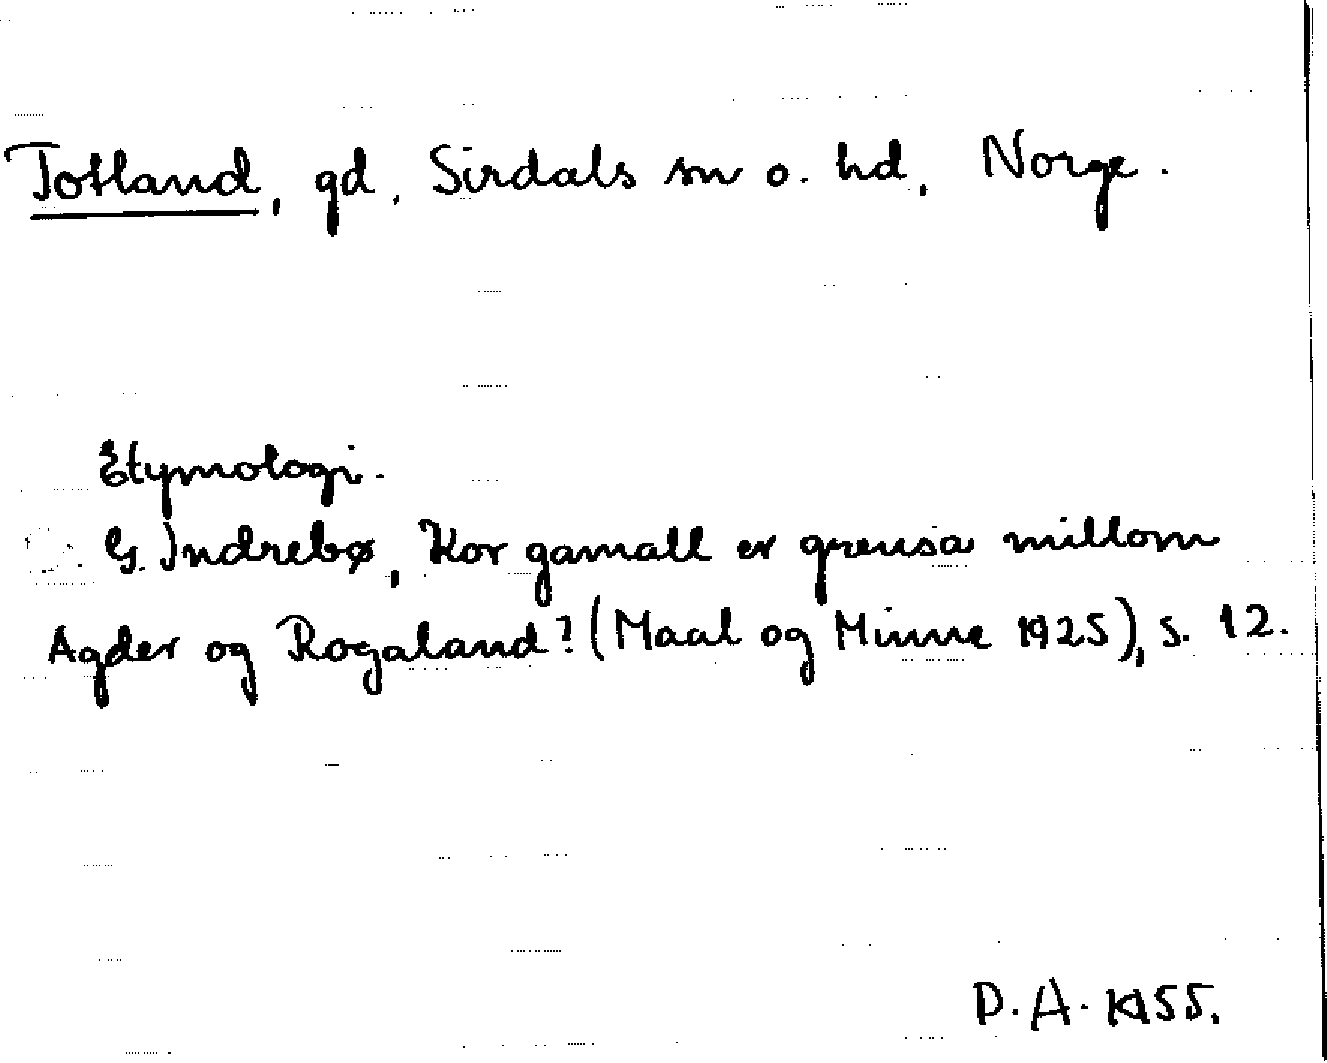 Totland, gd, Sirdals sn o. hd, Norge.
Etymologi.
G. Indrebø, Kor gamall er grensa millom
Agder og Rogaland? (Maal og Minne 1925), s. 12.
D. A. 1955.